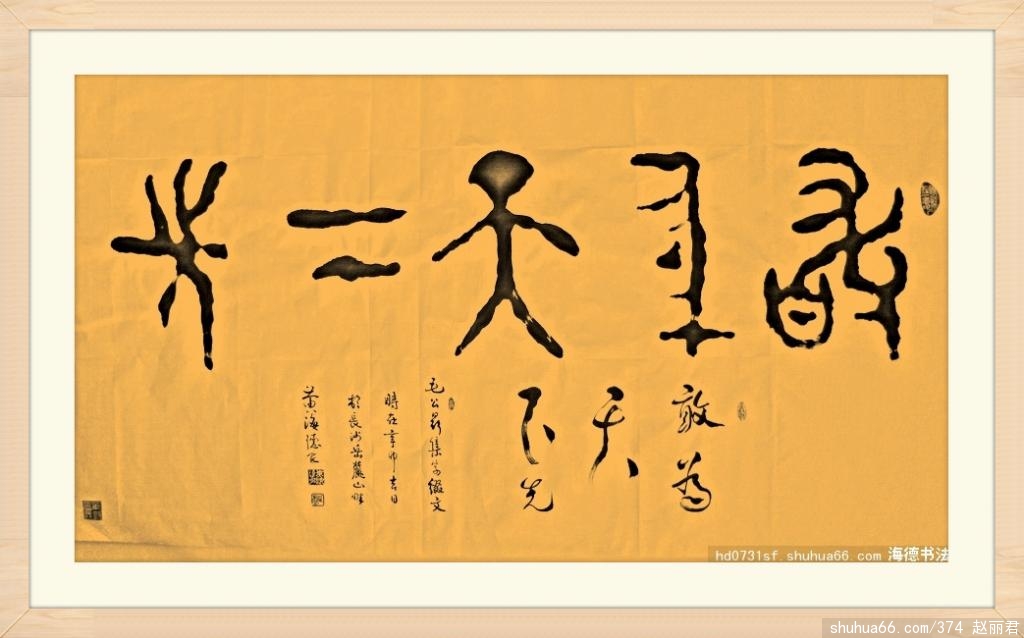 敢為天下先
敢為
天
下先
毛公鼎集字綴文
時在辛卯吉日
於長沙岳麓山
海德
hd0731sf.shuhua66.com 海德书法
shuhua66.com/374 赵丽君